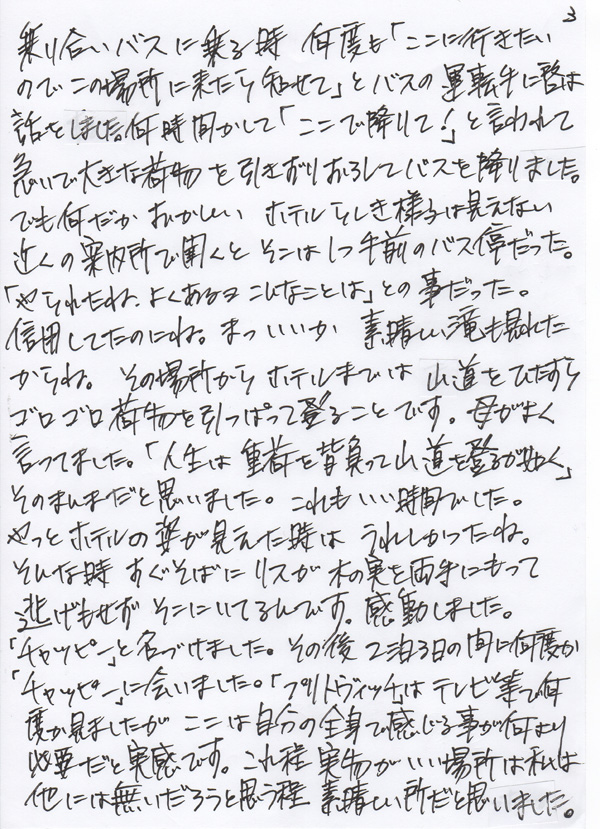 3
乗り合いバスに乗る時 何度も「ここに行きたい
のでこの場所に来たら知せて」とバスの運転手に啓は
話をしました。何時間かして「ここで降りて!」と言われて
急いで大きな荷物を引きずりおろしてバスを降りました。
でも何だかおかしい ホテルらしき様子は見えない
近くの案内所で聞くとそこは1つ手前のバス停だった。
「やられたね、よくあるよこんなことは」との事だった。
信用してたのにね。まっいいか 素晴しい滝も見れた
からね。 その場所からホテルまでは 山道をひたすら
ゴロゴロ荷物を引っぱって登ることです。母がよく
言ってました。「人生は重荷を背負って山道を登るが如く」
そのまんまだと思いました。これもいい時間でした。
やっとホテルの姿が見えた時は うれしかったね。
そんな時 すぐそばにリスが木の実を両手にもって
逃げもせず そこにいてるんです。感動しました。
「チャッピー」と名づけました。その後 2泊3日の間に何度か
「チャッピー」に会いました。「プリトヴィッチ」はテレビ等で何
度か見ましたが ここは自分の全身で感じる事が何より
必要だと実感です。これ程 実物がいい場所は私は
他には無いだろうと思う程 素晴しい所だと思いました。